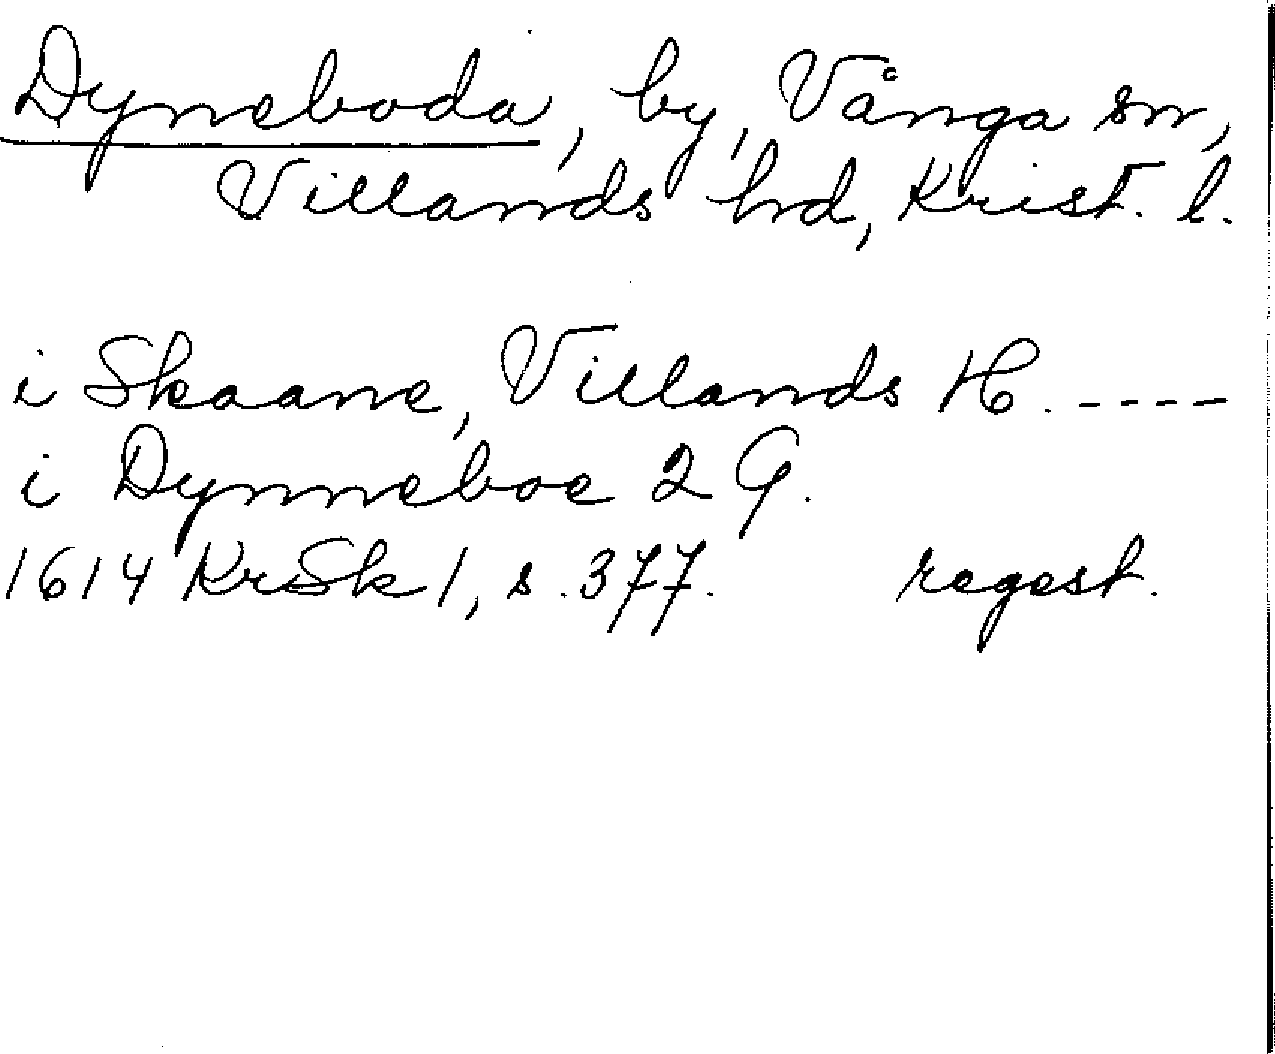 Dyneboda, by, Vånga sn,
Villands hd, Krist. l.
i Skaane, Villands H. ----
i Dynneboe 2 G.
1614 KrSk 1, s. 377. regest.